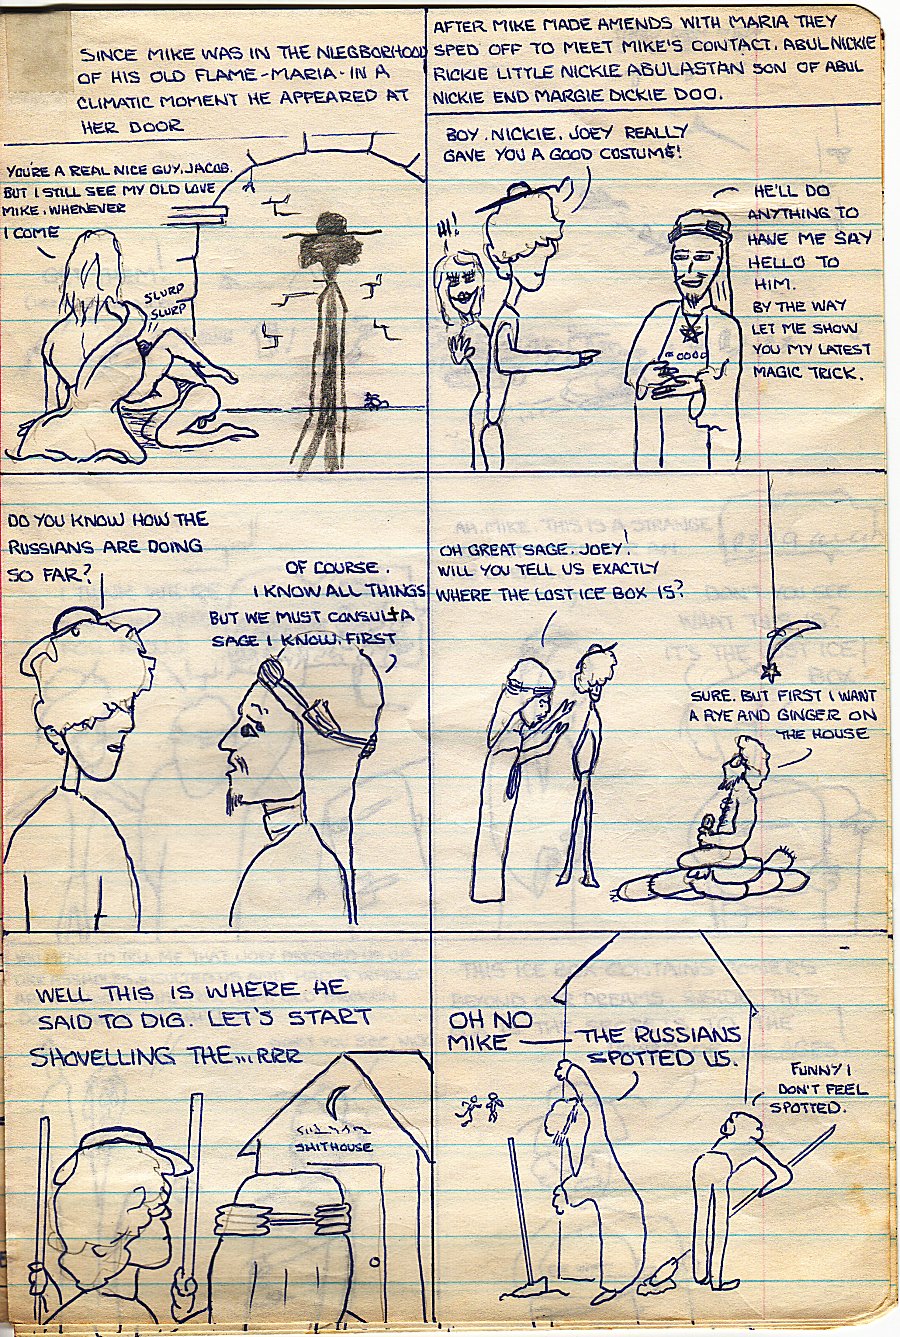 SINCE MIKE WAS IN THE NIEGBORHOOD
OF HIS OLD FLAME-MARIA-IN A
CLIMATIC MOMENT HE APPEARED AT
HER DOOR
YOU'RE A REAL NICE GUY, JACOB.
BUT I STILL SEE MY OLD LOVE
MIKE, WHENEVER
I COME
SLURP
SLURP
AFTER MIKE MADE AMENDS WITH MARIA THEY
SPED OFF TO MEET MIKE'S CONTACT. ABUL NICKIE
RICKIE LITTLE NICKIE ABULASTAN SON OF ABUL
NICKIE END MARGIE DICKIE DOO.
BOY, NICKIE, JOEY REALLY
GAVE YOU A GOOD COSTUME!
HI!
HE'LL DO
ANYTHING TO
HAVE ME SAY
HELLO TO
HIM.
BY THE WAY
LET ME SHOW
YOU MY LATEST
MAGIC TRICK.
DO YOU KNOW HOW THE
RUSSIANS ARE DOING
SO FAR?
OF COURSE.
I KNOW ALL THINGS
BUT WE MUST CONSULT A
SAGE I KNOW, FIRST
OH GREAT SAGE, JOEY!
WILL YOU TELL US EXACTLY
WHERE THE LOST ICE BOX IS?
SURE. BUT FIRST I WANT
A RYE AND GINGER ON
THE HOUSE
WELL THIS IS WHERE HE
SAID TO DIG. LET'S START
SHOVELLING THE...RRR
SHITHOUSE
OH NO
MIKE
THE RUSSIANS
SPOTTED US.
FUNNY I
DON'T FEEL
SPOTTED.